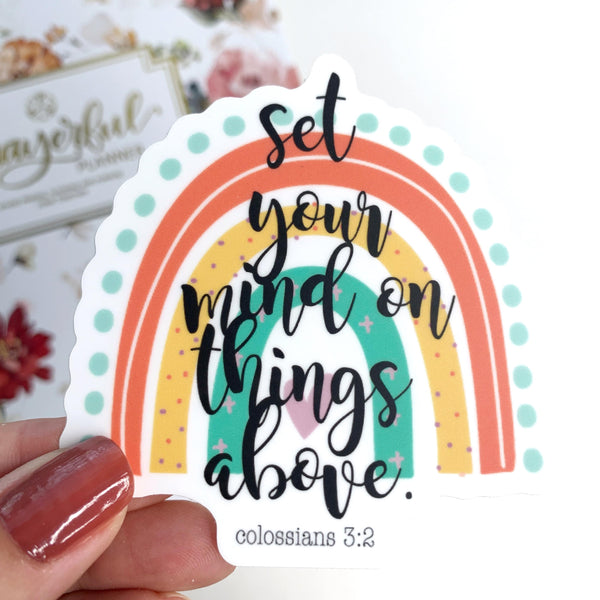 PLANNER
set
your
mind on
things
above.
colossians 3:2